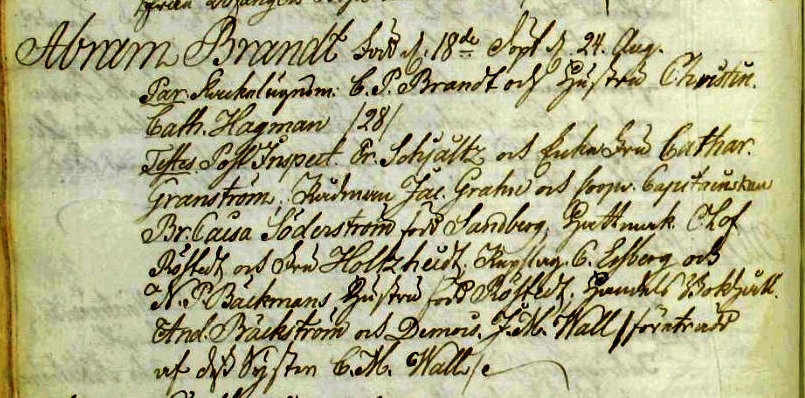 Abram Brandt född d. 18de döpt d. 24. Aug.
Par. Kackelugnsm. C. P. Brandt och Hustru Christin.
Cath. Hagman /28/
Testes. Post Inspect. Fr. Schjaltz och Enke Fru Cathar.
Granström, Rådman Jac. Grahn och Capitainskan
Br. Caisa Söderström född Sandberg, Hattmak. C. Lof
Röstedt och Fru Holtzheidt, C. Esberg och
N. P. Bäckmans Hustru född Röstedt, Handels Bokhåll.
And. Bäckström och Demois. J. M. Wall /förträdd
af dess Syster C. M. Wall/